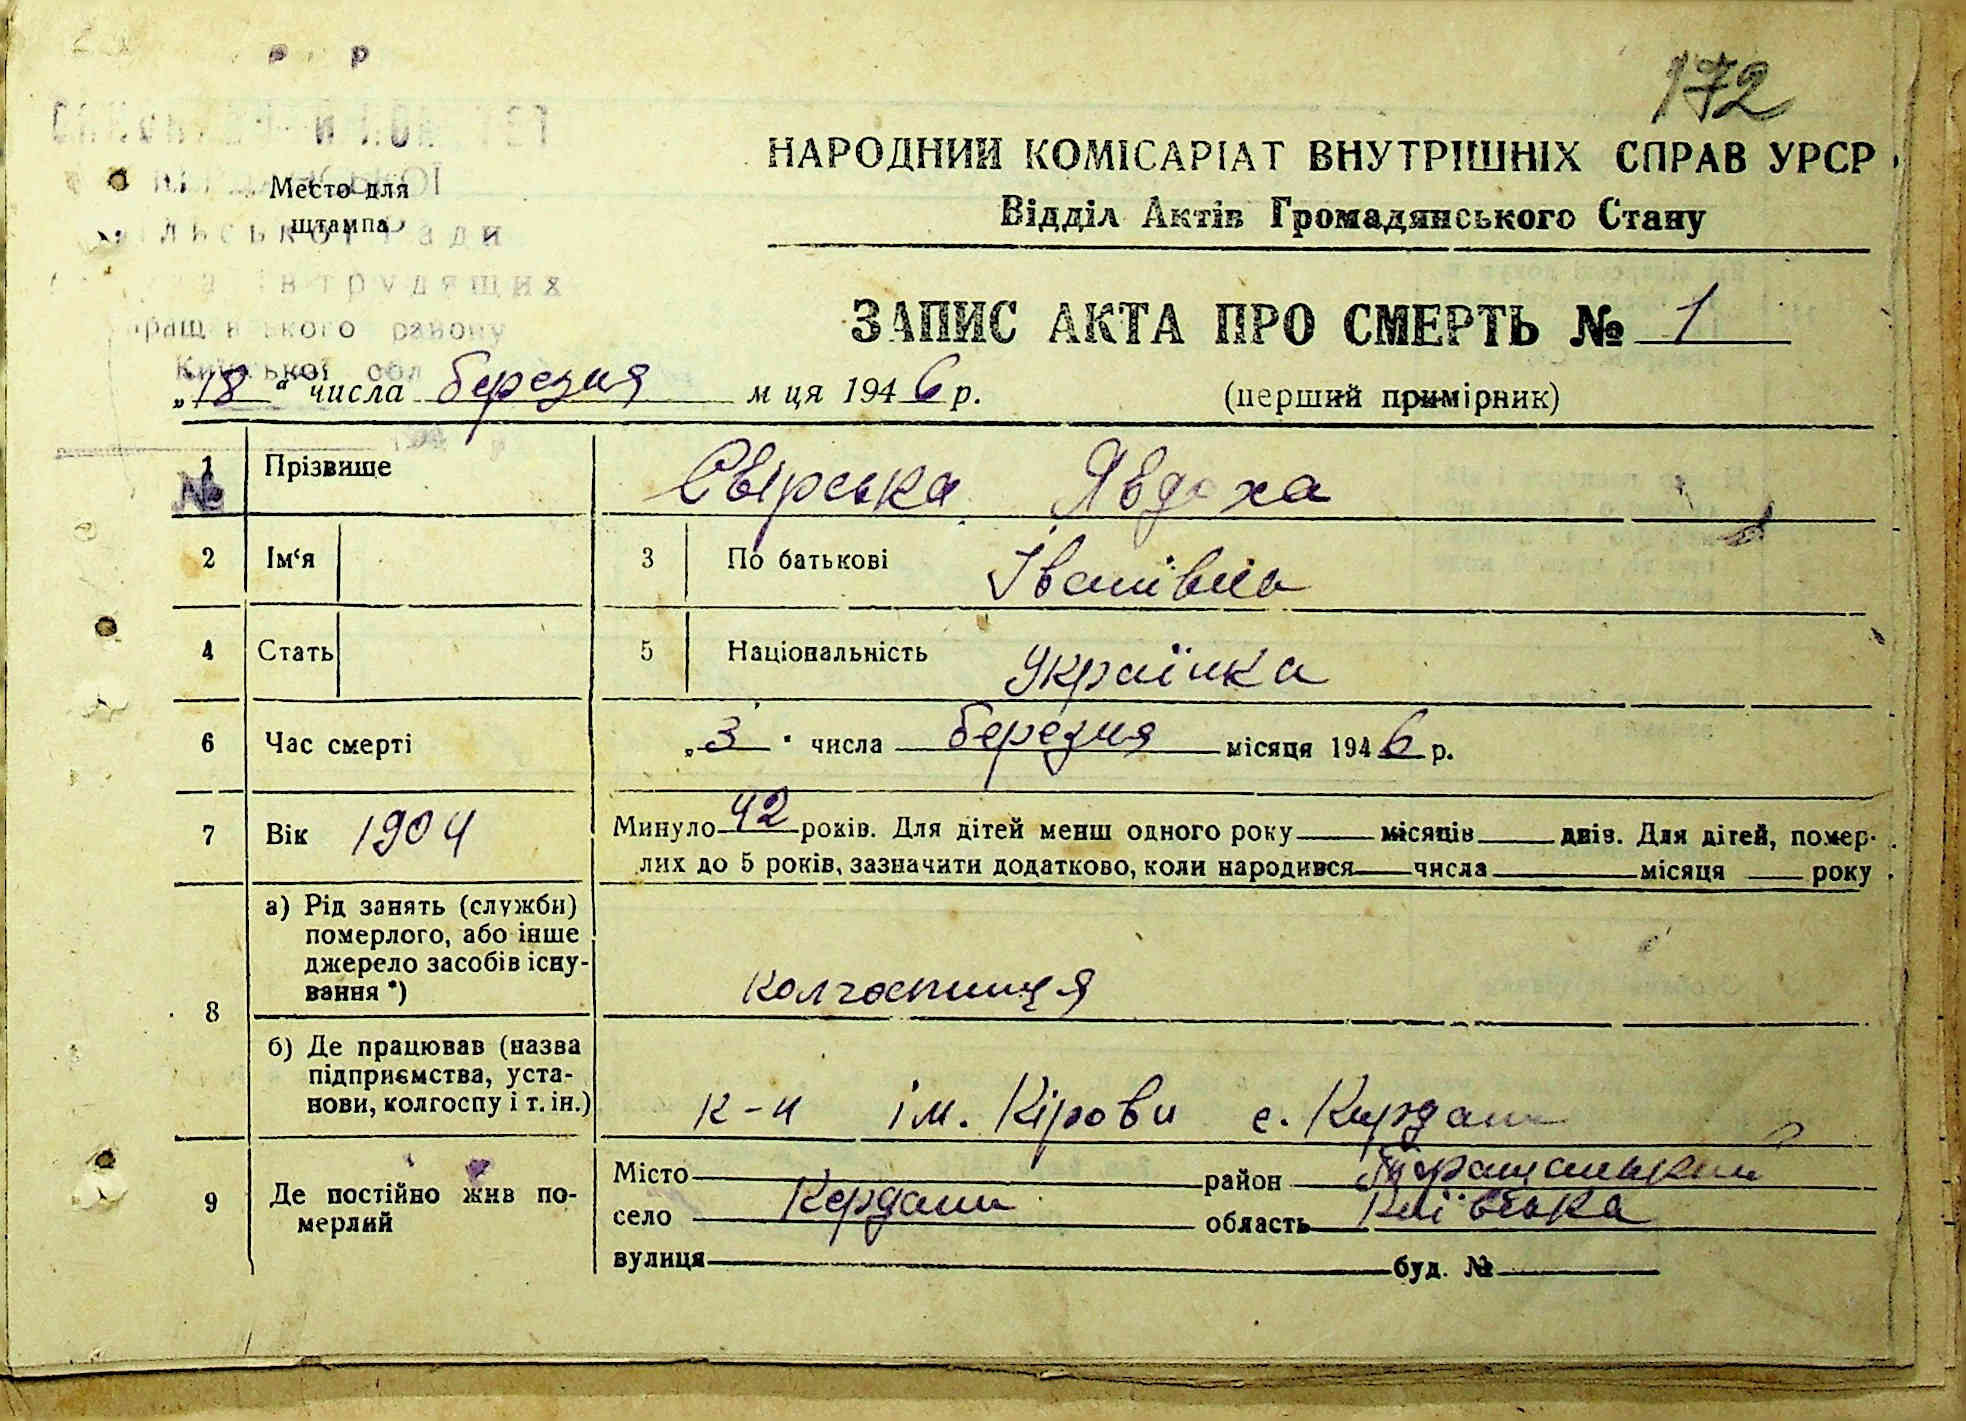 172
НАРОДНИЙ КОМІСАРІАТ ВНУТРІШНІХ СПРАВ УРСР
Відділ Актів Громадянського Стану
Место для
штампа
льської ради
трудящих
ського району
Київської обл
ЗАПИС АКТА ПРО СМЕРТЬ № 1
„18“ числа березня м ця 1946 р.
(перший примірник)
1 Прізвище Свірська Явдоха
№
2 Ім‘я 3 По батькові Іванівна
4 Стать 5 Національність Українка
6 Час смерті „3“ числа березня місяця 1946 р.
7 Вік 1904 Минуло 42 років. Для дітей менш одного року місяців днів. Для дітей, помер-
лих до 5 років, зазначити додатково, коли народився числа місяця року
8 а) Рід занять (служби)
померлого, або інше
джерело засобів існу-
вання *)
колгоспниця
б) Де працював (назва
підприємства, уста-
нови, колгоспу і т. ін.)
к-п ім. Кірова с. Кердани
9 Де постійно жив по-
мерлий
Місто район Таращанський
село Кердани область Київська
вулиця буд. №